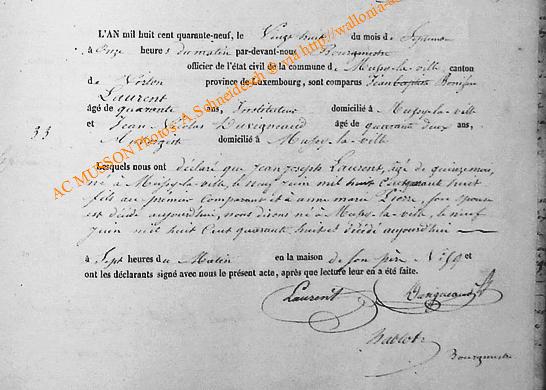 L'AN mil huit cent quarante-neuf, le Vingt huit du mois de Septembre
à Onze heures du matin par-devant-nous Bourgmestre
officier de l'état civil de la commune de Mussy-la-ville canton
de Virton province de Luxembourg, sont comparus Jean baptiste Bonifac
Laurent
âgé de quarante ans, Instituteur domicilié à Mussy-la-ville
33 et Jean Nicolas âgé de quarante deux ans,
domicilié à Mussy-la-ville
Lesquels nous ont déclaré que Jean Joseph Laurent, âgé de quinze mois,
né à Mussy-la-ville, le neuf Juin mil huit Cent quarante huit
fils au premier Comparant et à anne marie son épouse
est décédé aujourd'hui, nous disons né à Mussy-la-ville, le neuf
Juin mil huit Cent quarante huit et décédé aujourd'hui
à Sept heures du Matin en la maison de son père N° 59 et
ont les déclarants signé avec nous le présent acte, après que lecture leur en a été faite.
Laurent
Bourgmestre
AC MUSSON Photos: A. Schneidesch © via http://wallonia-a